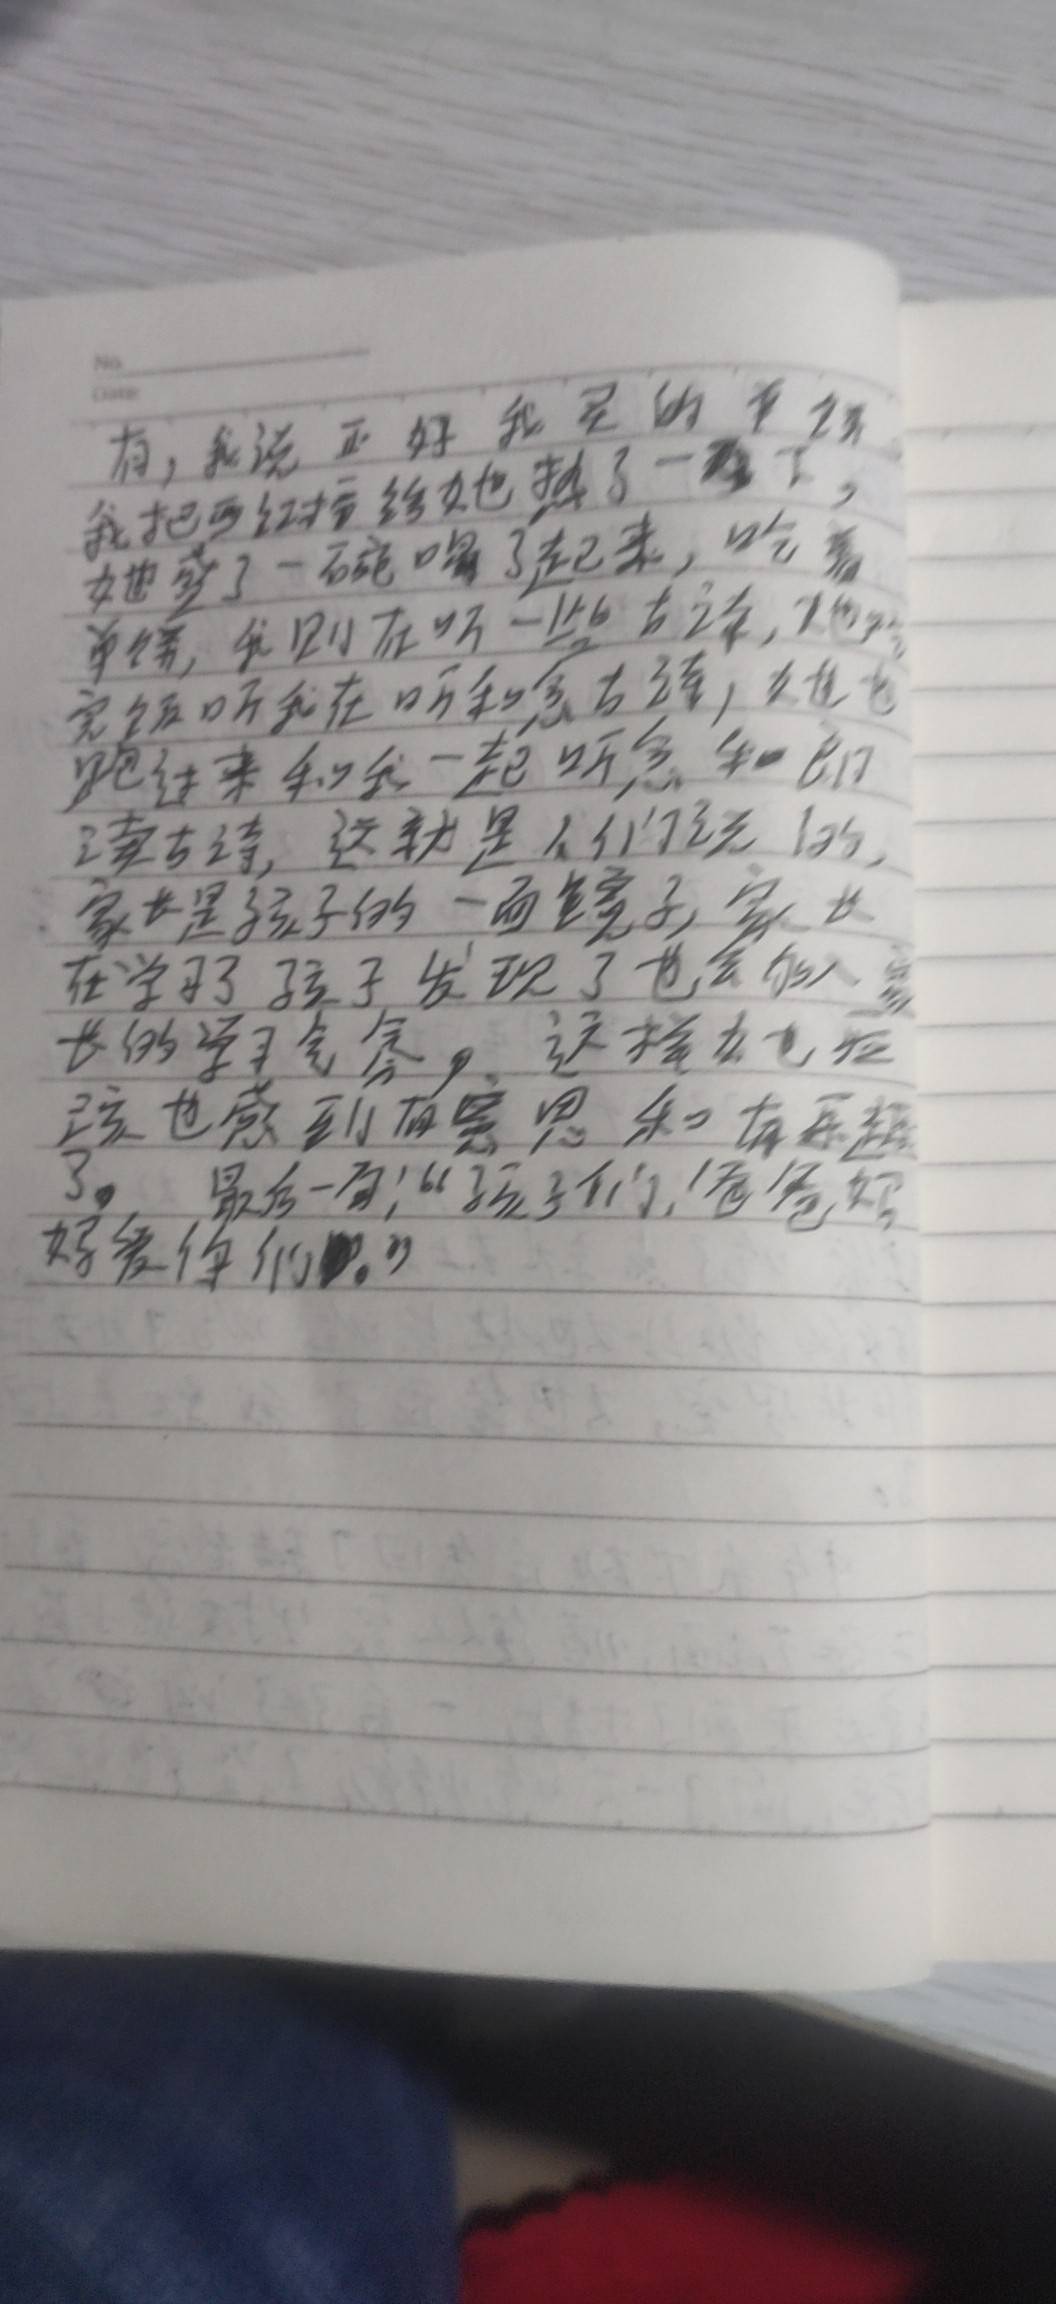 No.
Date
有，我说正好我买的单饼
我把西红柿给她热了一下，
她盛了一碗喝了起来，吃着
单饼，我则在听一些古诗，她吃
完饭听我在听和念古诗，她也
跑过来和我一起听念和
读古诗，这就是人们说的，
家长是孩子的一面镜子，家长
在学习了孩子发现了也会融入家
长的学习气氛。这样
孩也感到有意思和有乐趣
了。 最后一句：“孩子们，爸爸妈
好爱你们。”